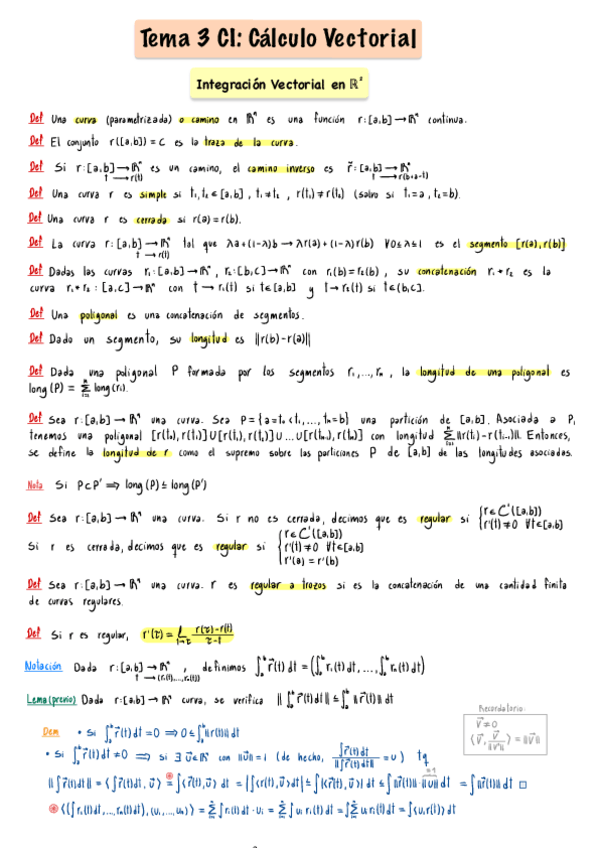 Tema 3 CI: Cálculo Vectorial
Integración Vectorial en ℝ²
Def Una curva (parametrizada) o camino en ℝⁿ es una función r:[a,b]→ℝⁿ continua.
Def El conjunto r([a,b]) = C es la traza de la curva.
Def Si r:[a,b]→ℝⁿ es un camino, el camino inverso es r̃:[a,b]→ℝⁿ
t→r(t) t→r(b+a-t)
Def Una curva r es simple si t₁,t₂∈[a,b], t₁≠t₂, r(t₁)≠r(t₂) (salvo si t₁=a, t₂=b).
Def Una curva r es cerrada si r(a)=r(b).
Def La curva r:[a,b]→ℝⁿ tal que λa+(1-λ)b→λr(a)+(1-λ)r(b) ∀0≤λ≤1 es el segmento [r(a),r(b)]
t→r(t)
Def Dadas las curvas r₁:[a,b]→ℝⁿ, r₂:[b,c]→ℝⁿ con r₁(b)=r₂(b), su concatenación r₁*r₂ es la
curva r₁*r₂:[a,c]→ℝⁿ con t→r₁(t) si t∈[a,b] y t→r₂(t) si t∈(b,c].
Def Una poligonal es una concatenación de segmentos.
Def Dado un segmento, su longitud es ||r(b)-r(a)||
Def Dada una poligonal P formada por los segmentos r₁,...,rₙ, la longitud de una poligonal es
long(P) = Σⁿᵢ₌₁ long(rᵢ).
Def Sea r:[a,b]→ℝⁿ una curva. Sea P={a=t₀<t₁,...,tₘ=b} una partición de [a,b]. Asociada a P,
tenemos una poligonal [r(t₀),r(t₁)]∪[r(t₁),r(t₂)]∪...∪[r(tₘ₋₁),r(tₘ)] con longitud Σ||r(tᵢ)-r(tᵢ₋₁)||. Entonces,
se define la longitud de r como el supremo sobre las particiones P de [a,b] de las longitudes asociadas.
Nota Si P⊂P' ⟹ long(P)≤long(P')
Def Sea r:[a,b]→ℝⁿ una curva. Si r no es cerrada, decimos que es regular si {r∈C¹([a,b])
r'(t)≠0 ∀t∈[a,b]
Si r es cerrada, decimos que es regular si {r∈C¹([a,b])
r'(t)≠0 ∀t∈[a,b]
r'(a)=r'(b)
Def Sea r:[a,b]→ℝⁿ una curva. r es regular a trozos si es la concatenación de una cantidad finita
de curvas regulares.
Def Si r es regular, r'(τ)= L t→τ r(τ)-r(t) / τ-t
Notación Dada r:[a,b]→ℝⁿ, definimos ∫ₐᵇ r⃗(t)dt = (∫ₐᵇ r₁(t)dt,...,∫ₐᵇ rₙ(t)dt)
t→(r₁(t),...,rₙ(t))
Lema(previo) Dada r:[a,b]→ℝⁿ curva, se verifica ||∫ₐᵇ r⃗(t)dt||≤∫ₐᵇ||r⃗(t)||dt
Recordatorio:
v⃗≠0
⟨v⃗, v⃗/||v⃗||⟩=||v⃗||
Dem • Si ∫ₐᵇ r⃗(t)dt=0 ⟹ 0≤∫ₐᵇ||r(t)||dt
• Si ∫ₐᵇ r⃗(t)dt≠0 ⟹ si ∃ u⃗∈ℝⁿ con ||u⃗||=1 (de hecho, ∫r⃗(t)dt / ||∫r⃗(t)dt|| = u) tq
||∫r⃗(t)dt||=⟨∫r⃗(t)dt, u⃗⟩ ⊛= ∫⟨r⃗(t),u⃗⟩dt = |∫⟨r(t),u⃗⟩dt|≤∫|⟨r⃗(t),u⃗⟩|dt≤∫||r⃗(t)||·||u⃗||dt =∫||r⃗(t)||dt □
⊛ ⟨(∫r₁(t)dt,...,rₙ(t)dt),(u₁,...,uₙ)⟩ = Σ∫rᵢ(t)dt·uᵢ = Σ∫uᵢrᵢ(t)dt=∫Σuᵢrᵢ(t)dt=∫⟨u,r(t)⟩dt